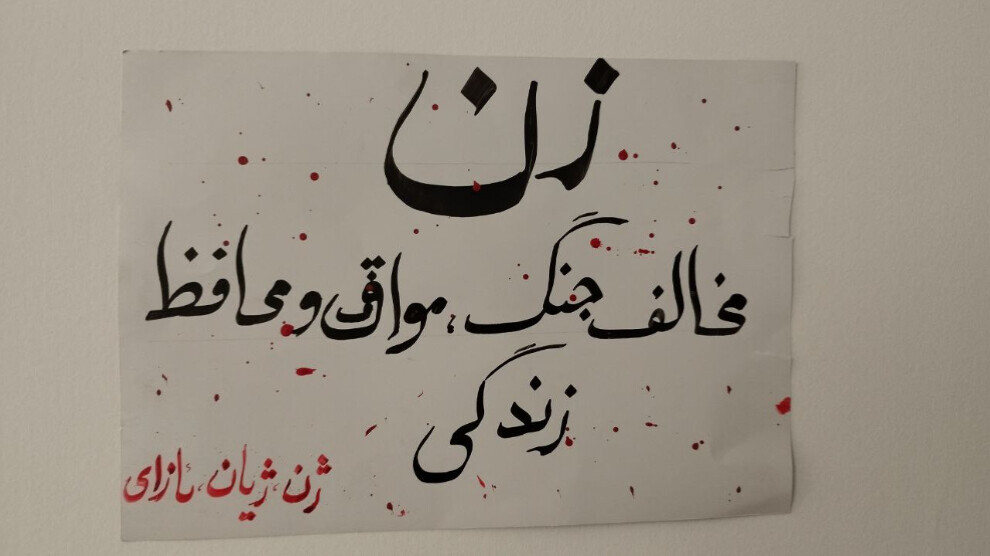 زن
مخالف جنگ، موافق و محافظ
زندگی
ژن، ژیان، ئازای